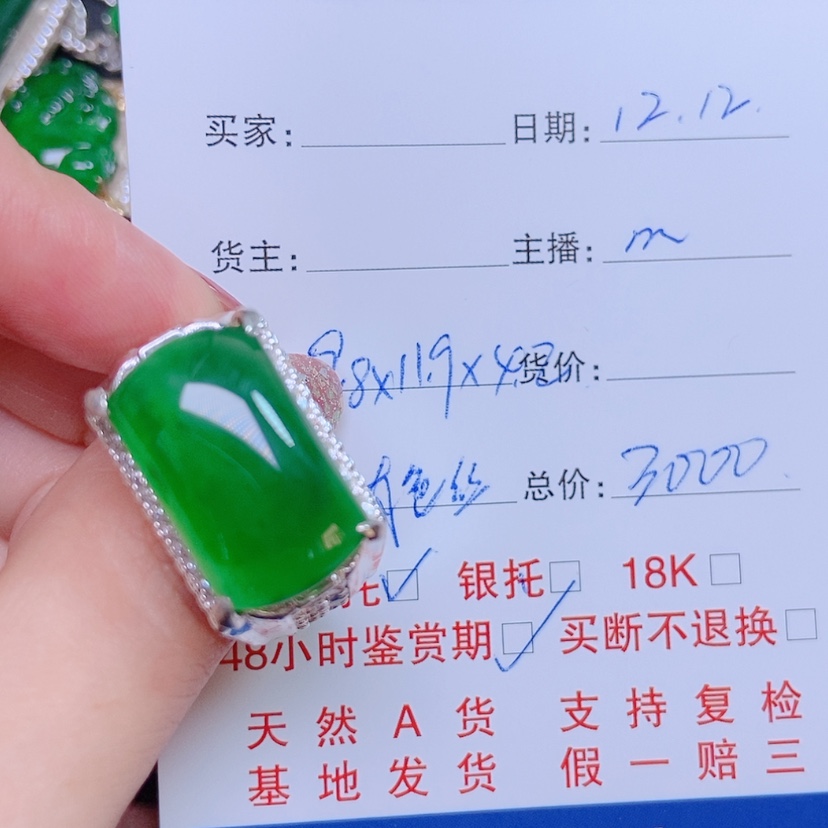 买家: 日期: 12.12.
货主: 主播: m
9.8x11.9x4.2 货价:
色丝 总价: 3000.
托 银托 18K
48小时鉴赏期 买断不退换
天然A货 支持复检
基地发货 假一赔三